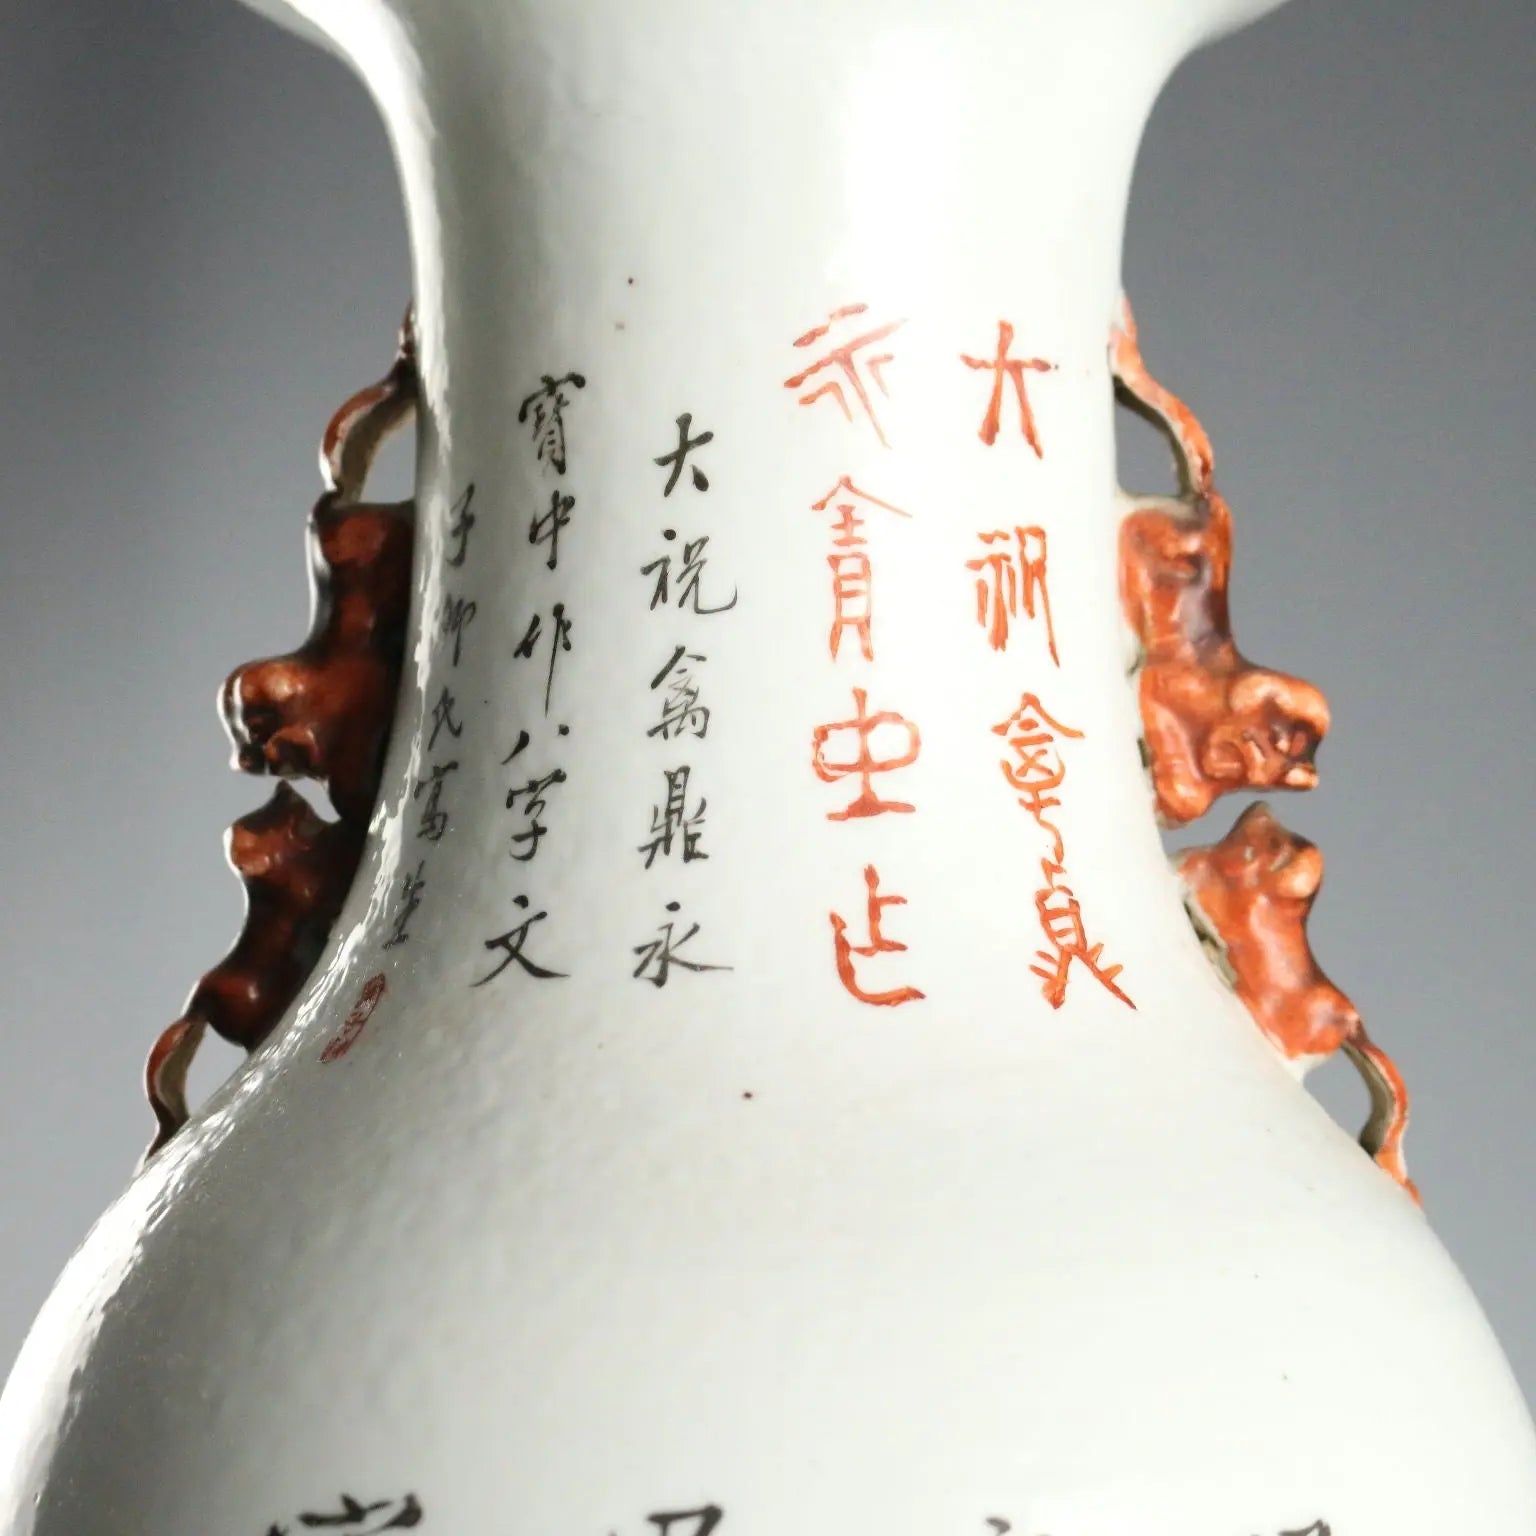 大祝禽鼎
永寶中作
大祝禽鼎永
寶中作八字文
子卿氏寫生